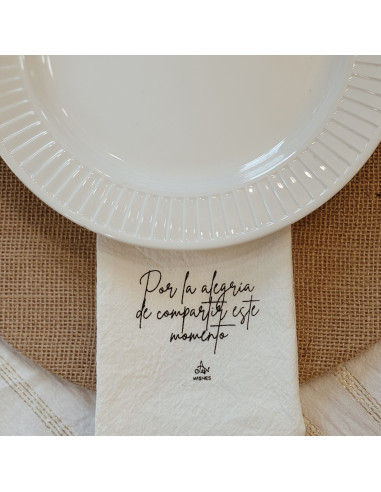 Por la alegria
de compartir este
momento
WISHES